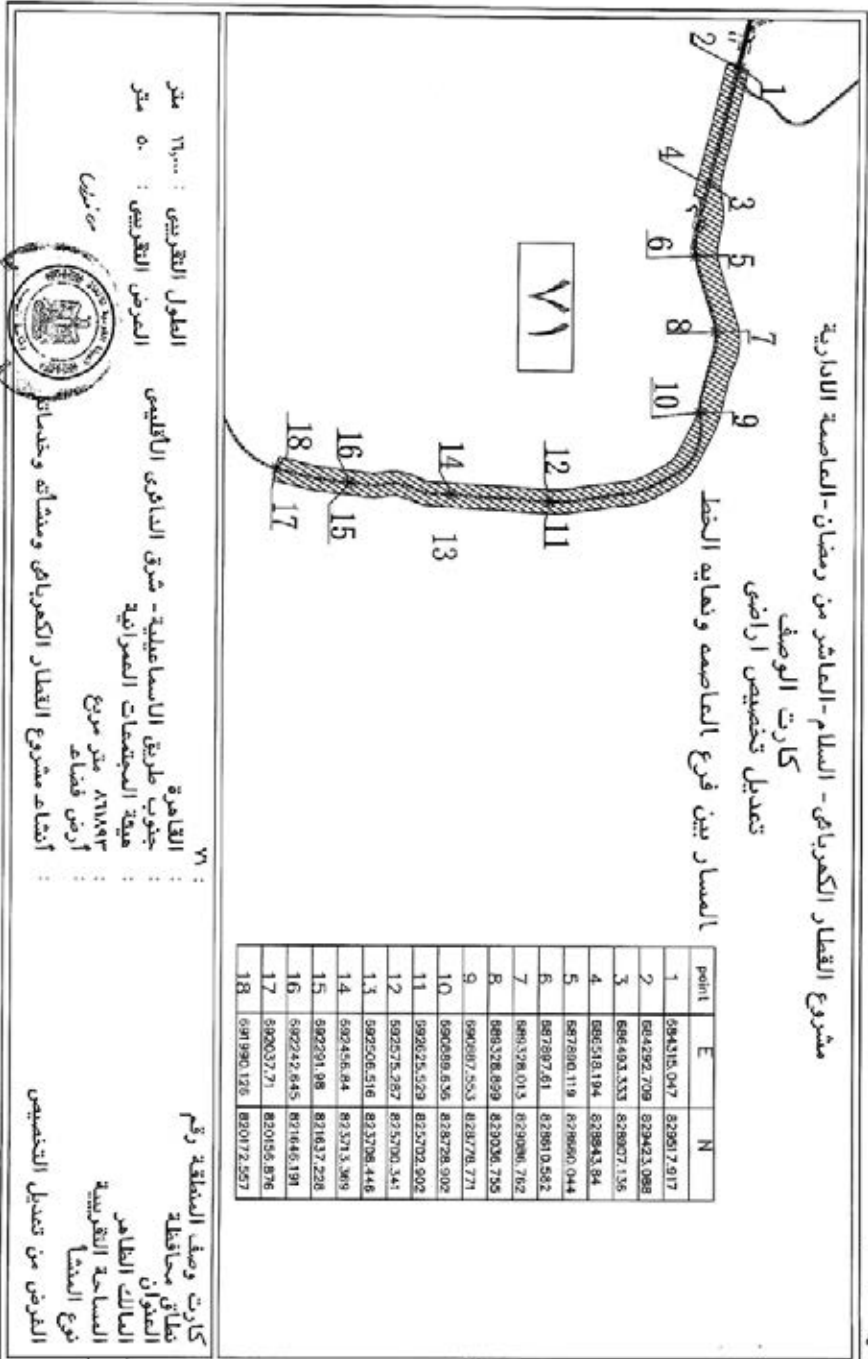 مشروع القطار الكهربائى - السلام-العاشر من رمضان-العاصمة الادارية
كارت الوصف
تعديل تخصيص اراضى
المسار بين فرع العاصمه ونهايه الخط
1
2
3
4
5
6
7
8
9
10
11
12
13
14
15
16
17
18
٧١
point E N
1 684315.047 829517.917
2 684292.709 829423.088
3 686493.333 828907.136
4 686518.194 828843.84
5 687890.119 828660.044
6 687897.61 828610.582
7 689328.013 829086.762
8 689328.899 829036.755
9 690887.553 828778.771
10 690889.636 828728.902
11 692625.529 825702.902
12 692575.287 825700.341
13 692506.516 823708.446
14 692456.84 823713.369
15 692291.98 821637.228
16 692242.645 821646.191
17 692037.71 820156.876
18 691990.126 820172.557
كارت وصف المنطقة رقم : ٧١
نطاق محافظة : القاهرة
العنوان : جنوب طريق الاسماعيلية - شرق الدائرى الأقليمى
المالك الظاهر : هيئة المجتمعات العمرانية
المساحة التقريبية : ٨٦١٨٩٣ متر مربع
نوع المنشأ : أرض فضاء
الغرض من تعديل التخصيص : أنشاء مشروع القطار الكهربائى ومنشأته وخدماته
الطول التقريبى : ١٦,٠٠٠ متر
العرض التقريبى : ٥٠ متر